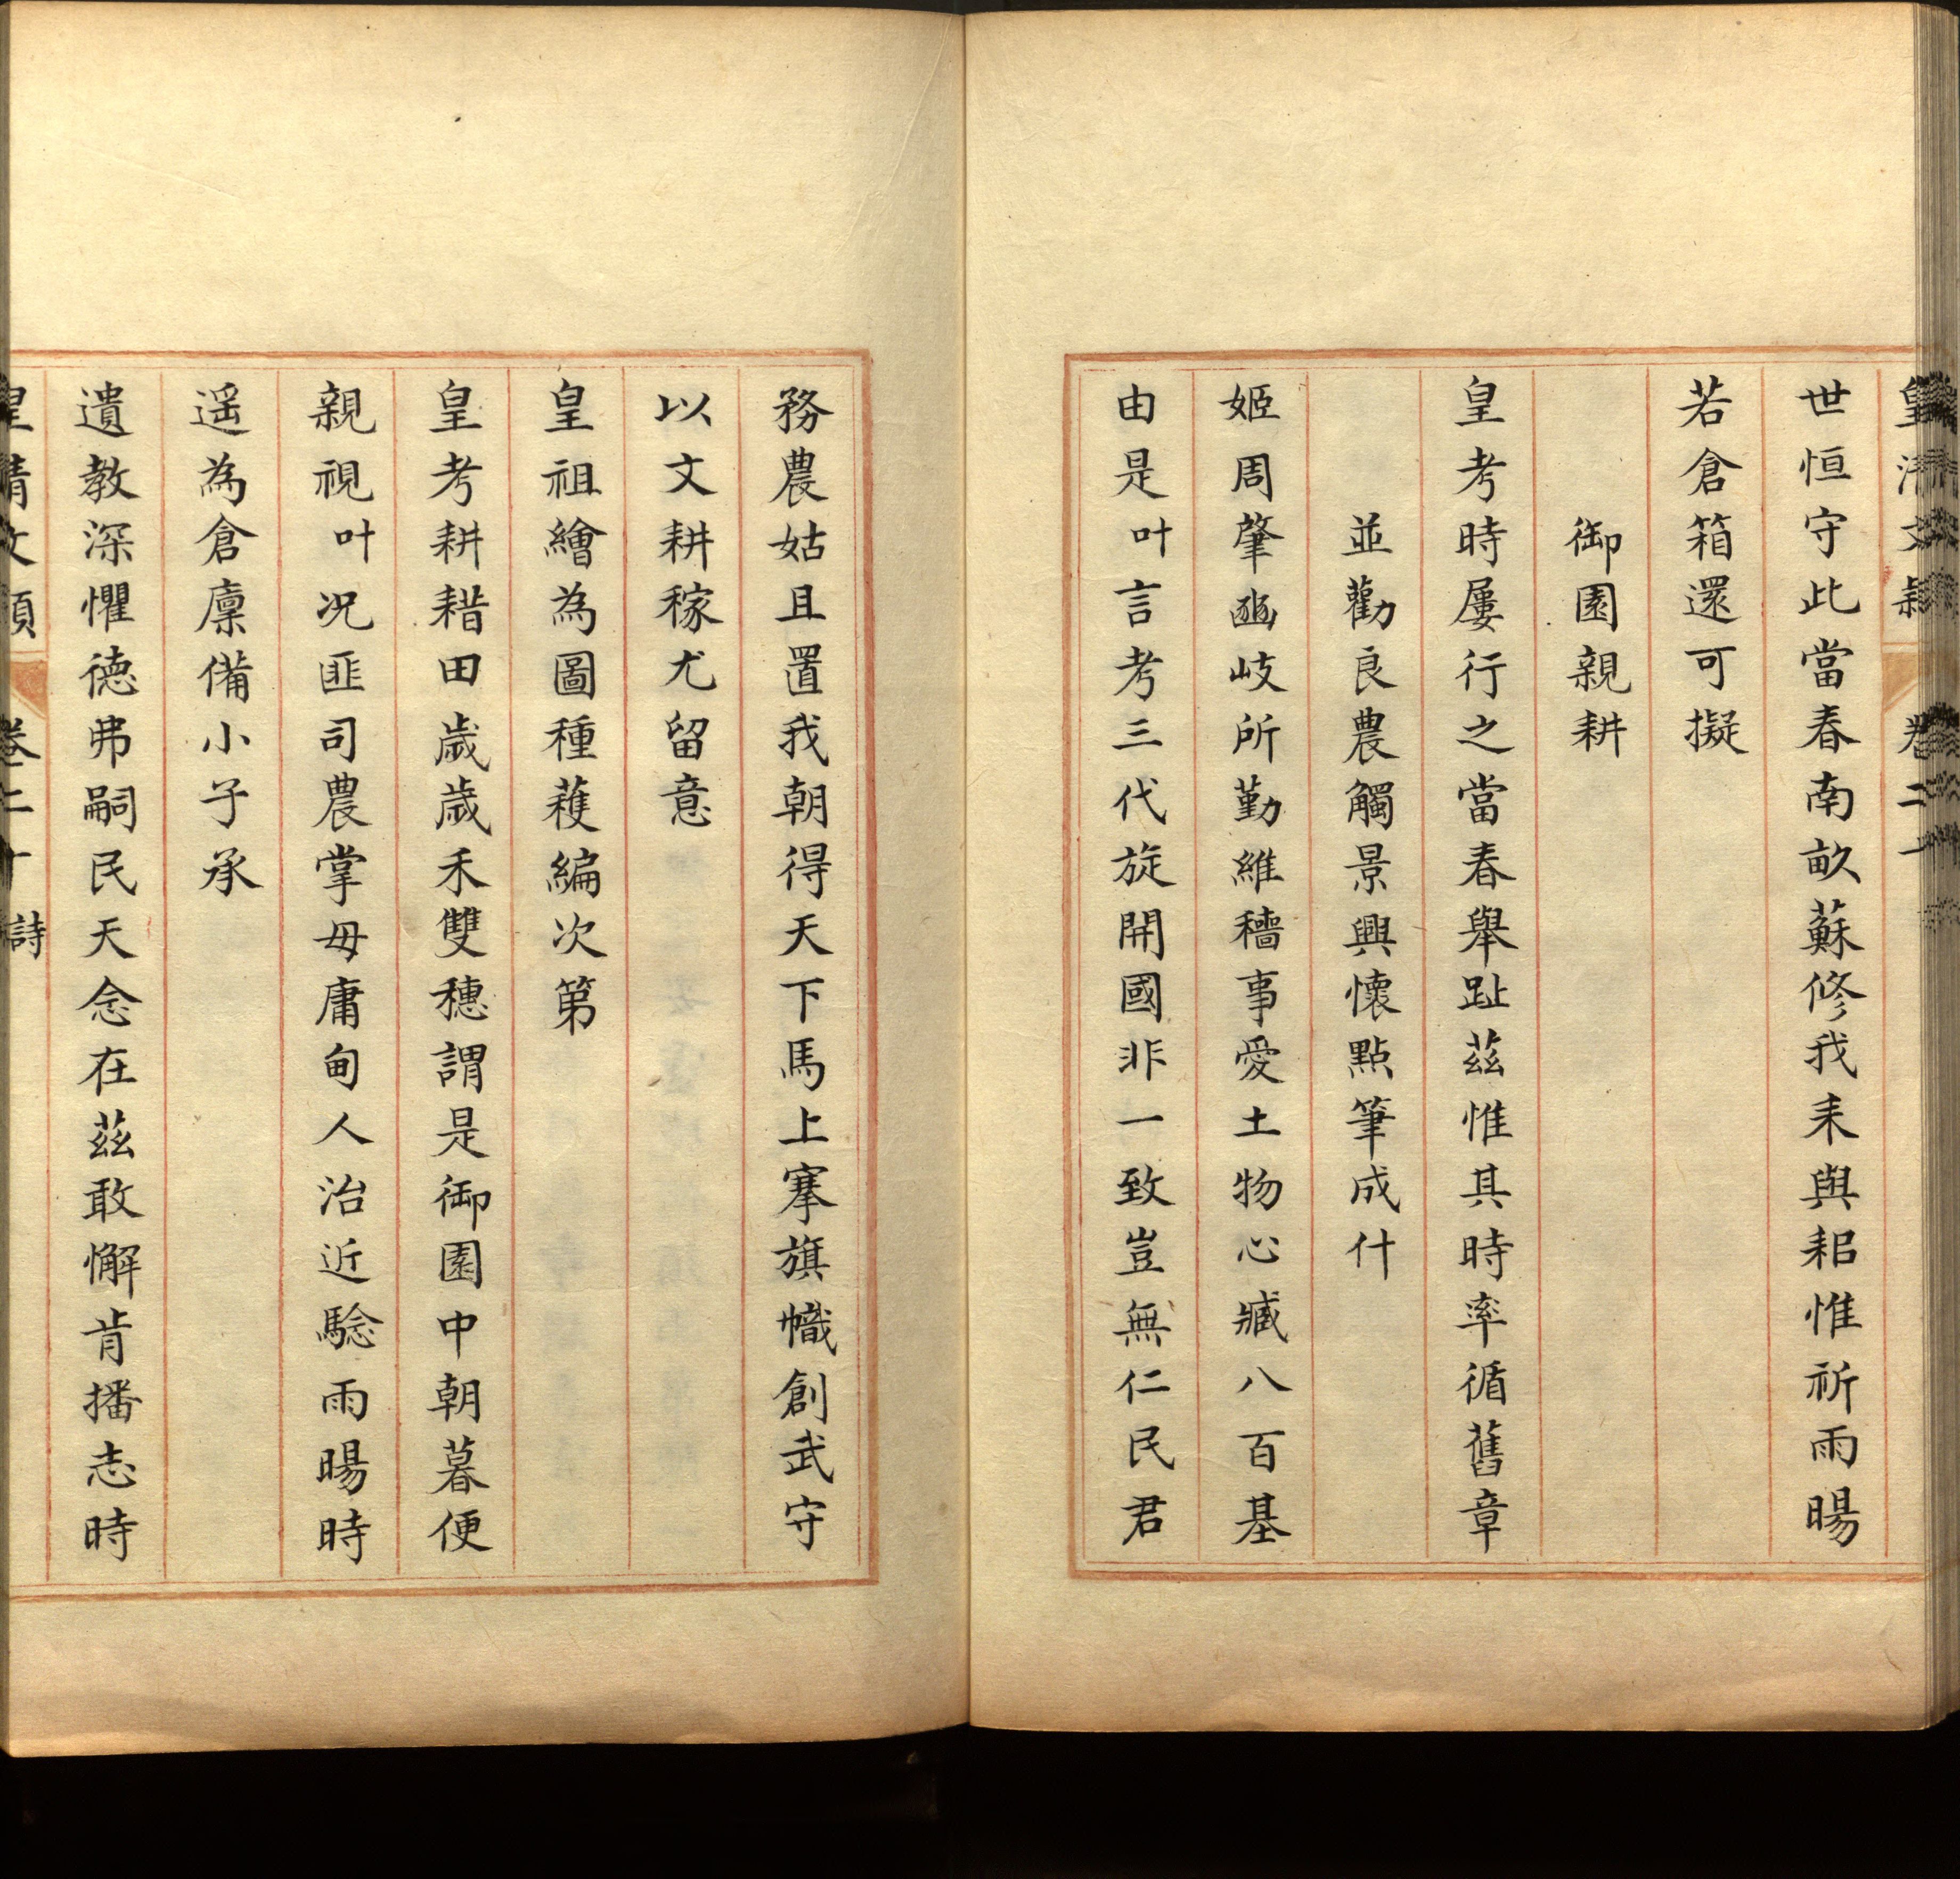 皇清文穎 卷二十
世恒守此當春南畝蘇修我耒與耜惟祈雨暘
若倉箱還可擬
御園親耕
皇考時屢行之當春舉趾茲惟其時率循舊章
並勸良農觸景興懷點筆成什
姬周肇豳岐所勤維穡事愛土物心臧八百基
由是叶言考三代旋開國非一致豈無仁民君
務農姑且置我朝得天下馬上搴旗幟創武守
以文耕稼尤留意
皇祖繪為圖種蓷編次第
皇考耕耤田歲歲禾雙穗謂是御園中朝暮便
親視叶況匪司農掌毋庸甸人治近驗雨暘時
遥為倉廩備小子承
遺教深懼德弗嗣民天念在茲敢懈肯播志時
皇清文穎 卷二十 詩